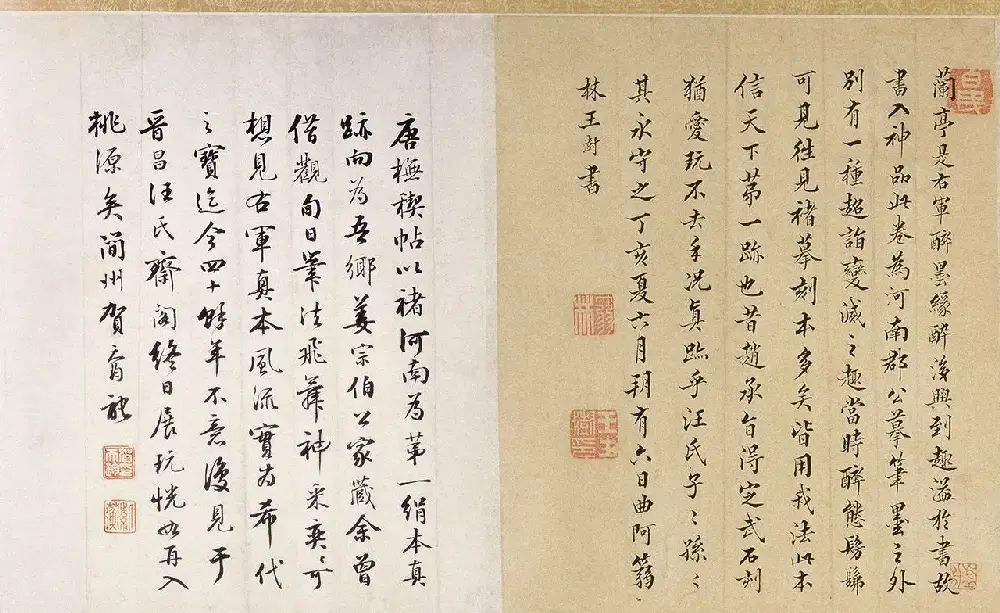 蘭亭是右軍醉墨緣醉後興到趣溢於書故
書入神品此卷為河南郡公摹筆墨之外
別有一種超詣變滅之趣當時醉態髣髴
可見往見褚摹刻本多矣皆用我法此本
信天下第一跡也昔趙承旨得定武石刻
猶愛玩不去手況真跡乎汪氏子〻孫〻
其永守之丁亥夏六月朔有六日曲阿蒻
林王澍書
唐橅禊帖以褚河南為第一絹本真
跡向為吾鄉姜宗伯公家藏余曾
借觀旬日筆法飛舞神采奕〻可
想見右軍真本風流實為希代
之寶迄今四十餘年不意復見于
晉昌汪氏齋閣終日展玩恍如再入
桃源矣簡州賀